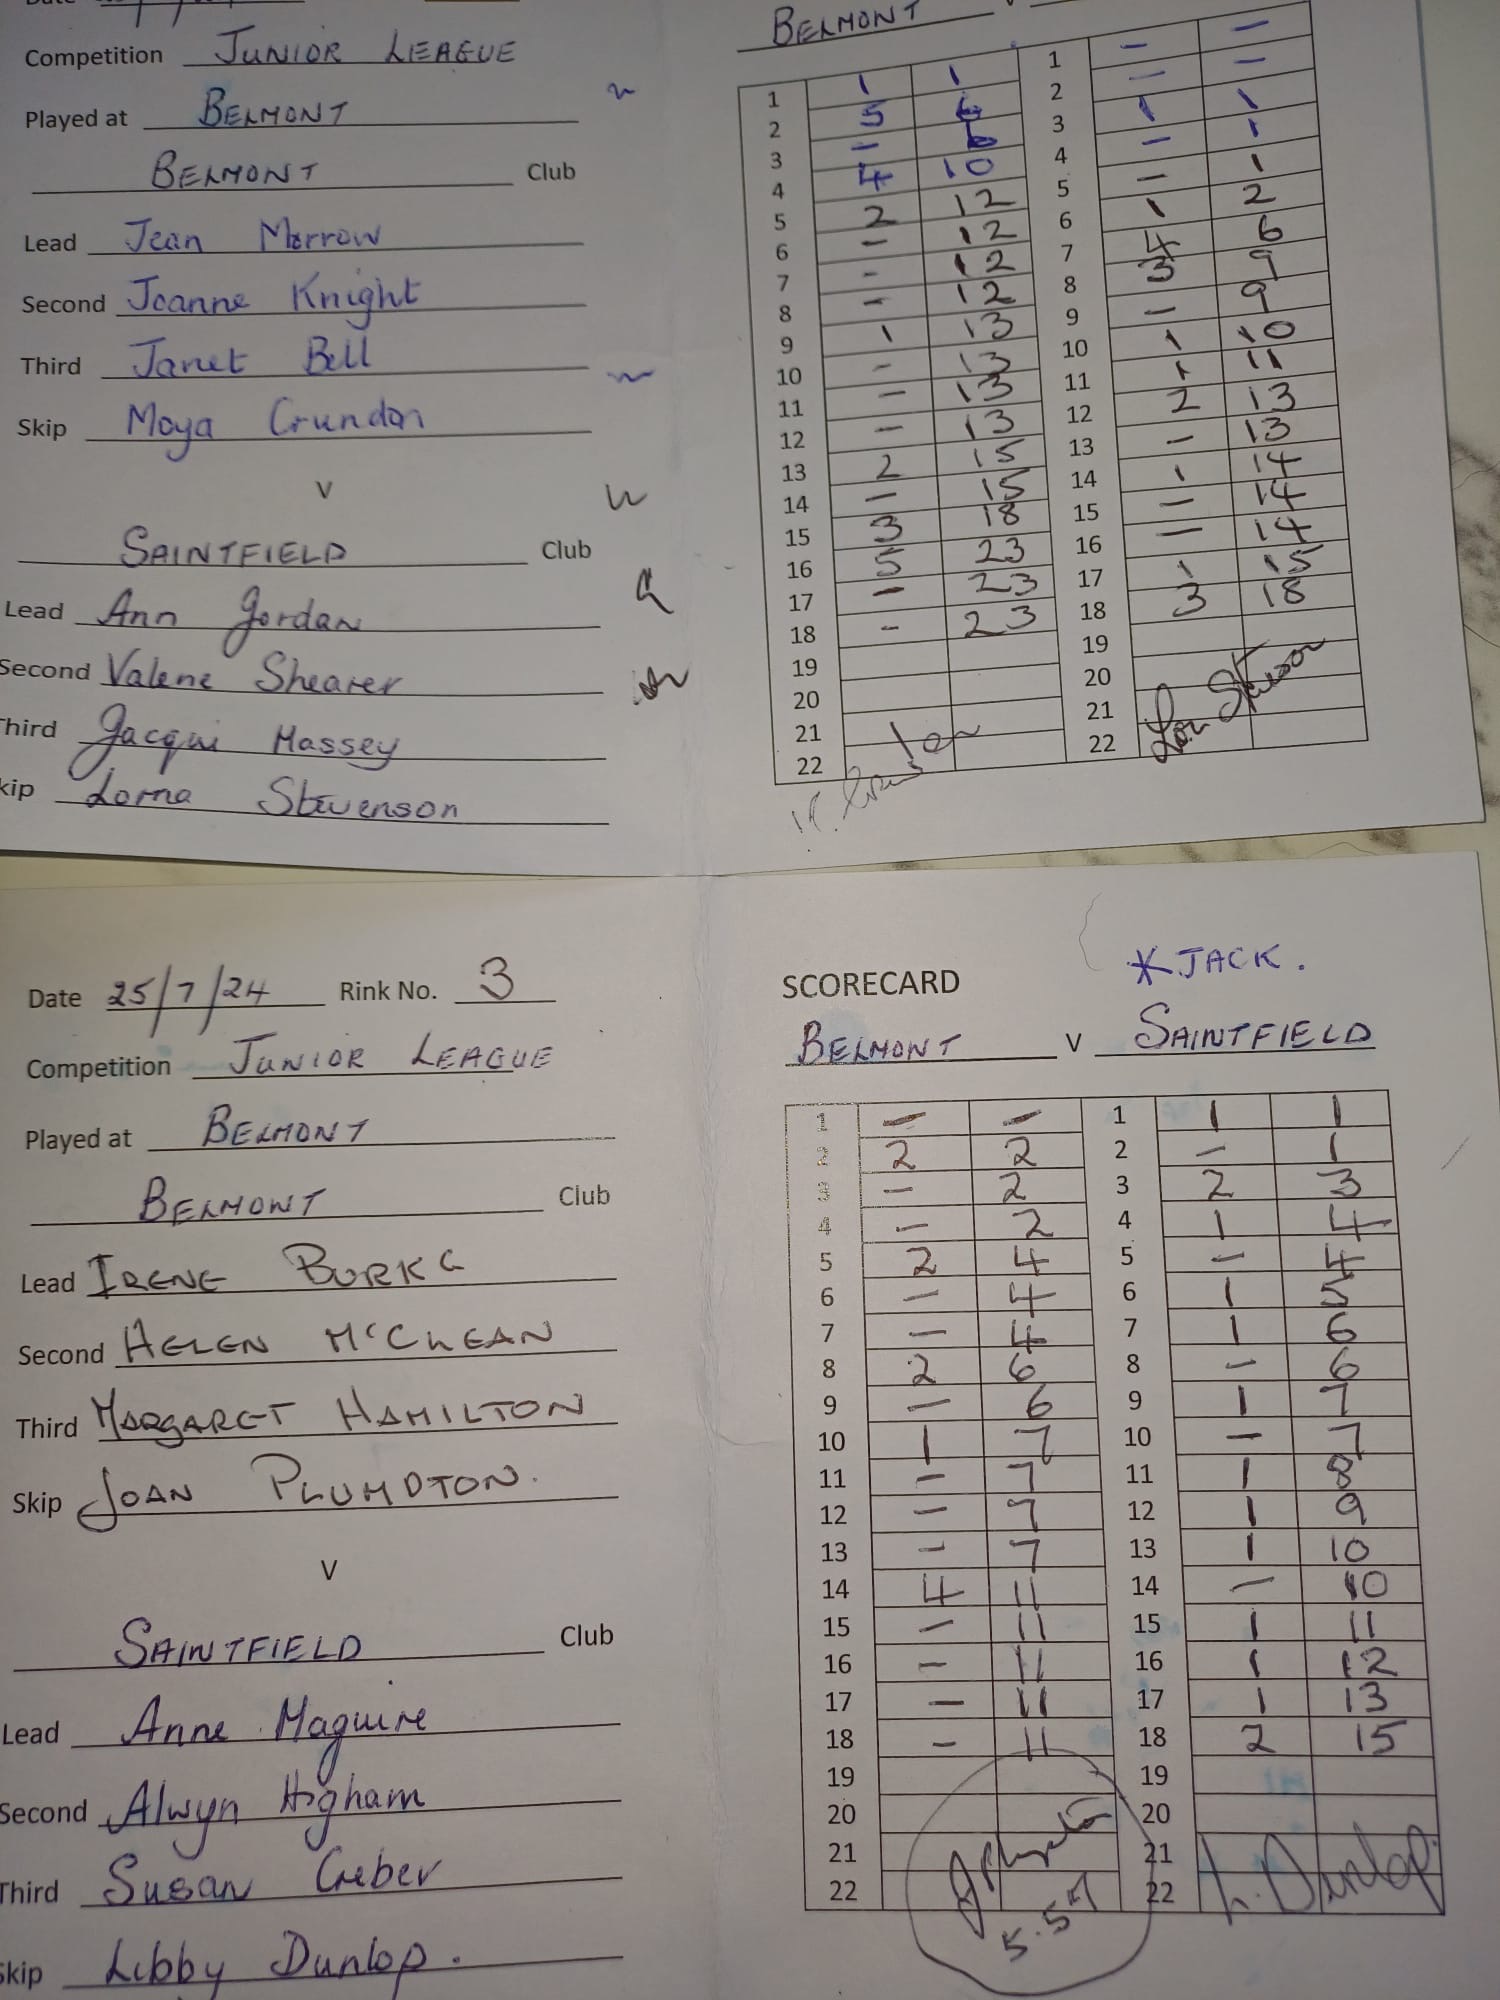 Competition JUNIOR LEAGUE
Played at BELMONT
BELMONT Club
Lead Jean Morrow
Second Joanne Knight
Third Janet Bell
Skip Moya Crundon
V
SAINTFIELD Club
Lead Ann Jordan
Second Valene Shearer
Third Jacqui Massey
kip Lorna Stevenson
BELMONT
1 1 1 1 - -
2 5 6 2 - -
3 - 6 3 1 1
4 4 10 4 - 1
5 2 12 5 - 1
6 - 12 6 1 2
7 - 12 7 4 6
8 - 12 8 3 9
9 1 13 9 - 9
10 - 13 10 1 10
11 - 13 11 1 11
12 - 13 12 2 13
13 2 15 13 - 13
14 - 15 14 1 14
15 3 18 15 - 14
16 5 23 16 - 14
17 - 23 17 1 15
18 - 23 18 3 18
19 19
20 20
21 21
22 22
Date 25/7/24 Rink No. 3
Competition JUNIOR LEAGUE
Played at BELMONT
BELMONT Club
Lead IRENE BURKE
Second HELEN McCLEAN
Third MARGARET HAMILTON
Skip JOAN PLUMPTON.
V
SAINTFIELD Club
Lead Anne Maguire
Second Alwyn Higham
Third Susan Creber
skip Libby Dunlop.
*JACK.
SCORECARD
BELMONT V SAINTFIELD
1 - - 1 1 1
2 2 2 2 - 1
3 - 2 3 2 3
4 - 2 4 1 4
5 2 4 5 - 4
6 - 4 6 1 5
7 - 4 7 1 6
8 2 6 8 - 6
9 - 6 9 1 7
10 1 7 10 - 7
11 - 7 11 1 8
12 - 7 12 1 9
13 - 7 13 1 10
14 4 11 14 - 10
15 - 11 15 1 11
16 - 11 16 1 12
17 - 11 17 1 13
18 - 11 18 2 15
19 19
20 20
21 21
22 22
L. Dunlop